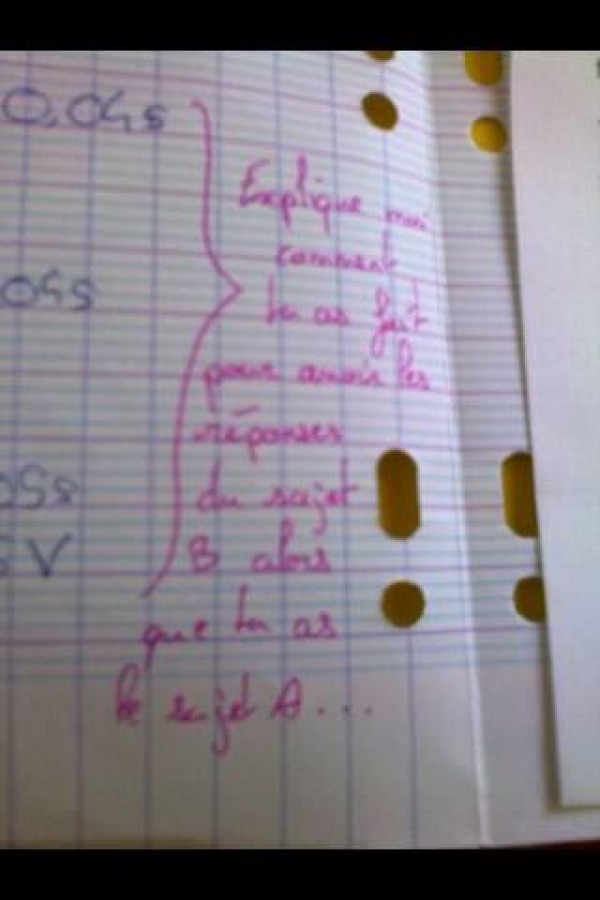 0,04s
Explique moi
comment
04s
tu as fait
pour avoir les
réponses
05s
du sujet
V
B alors
que tu as
le sujet A...